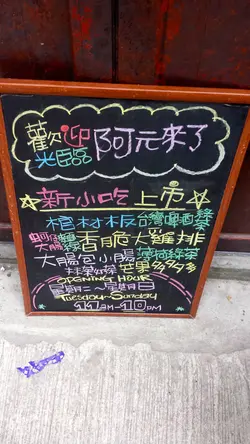 歡迎光臨 阿元來了
新小吃上市
棺材板 台灣啤酒
蚵仔大腸麵線 香脆大雞排
大腸包小腸 薄荷綠茶
芒果多多
OPENING HOUR
星期二~星期日
Tuesday~Sunday
11am-10pm